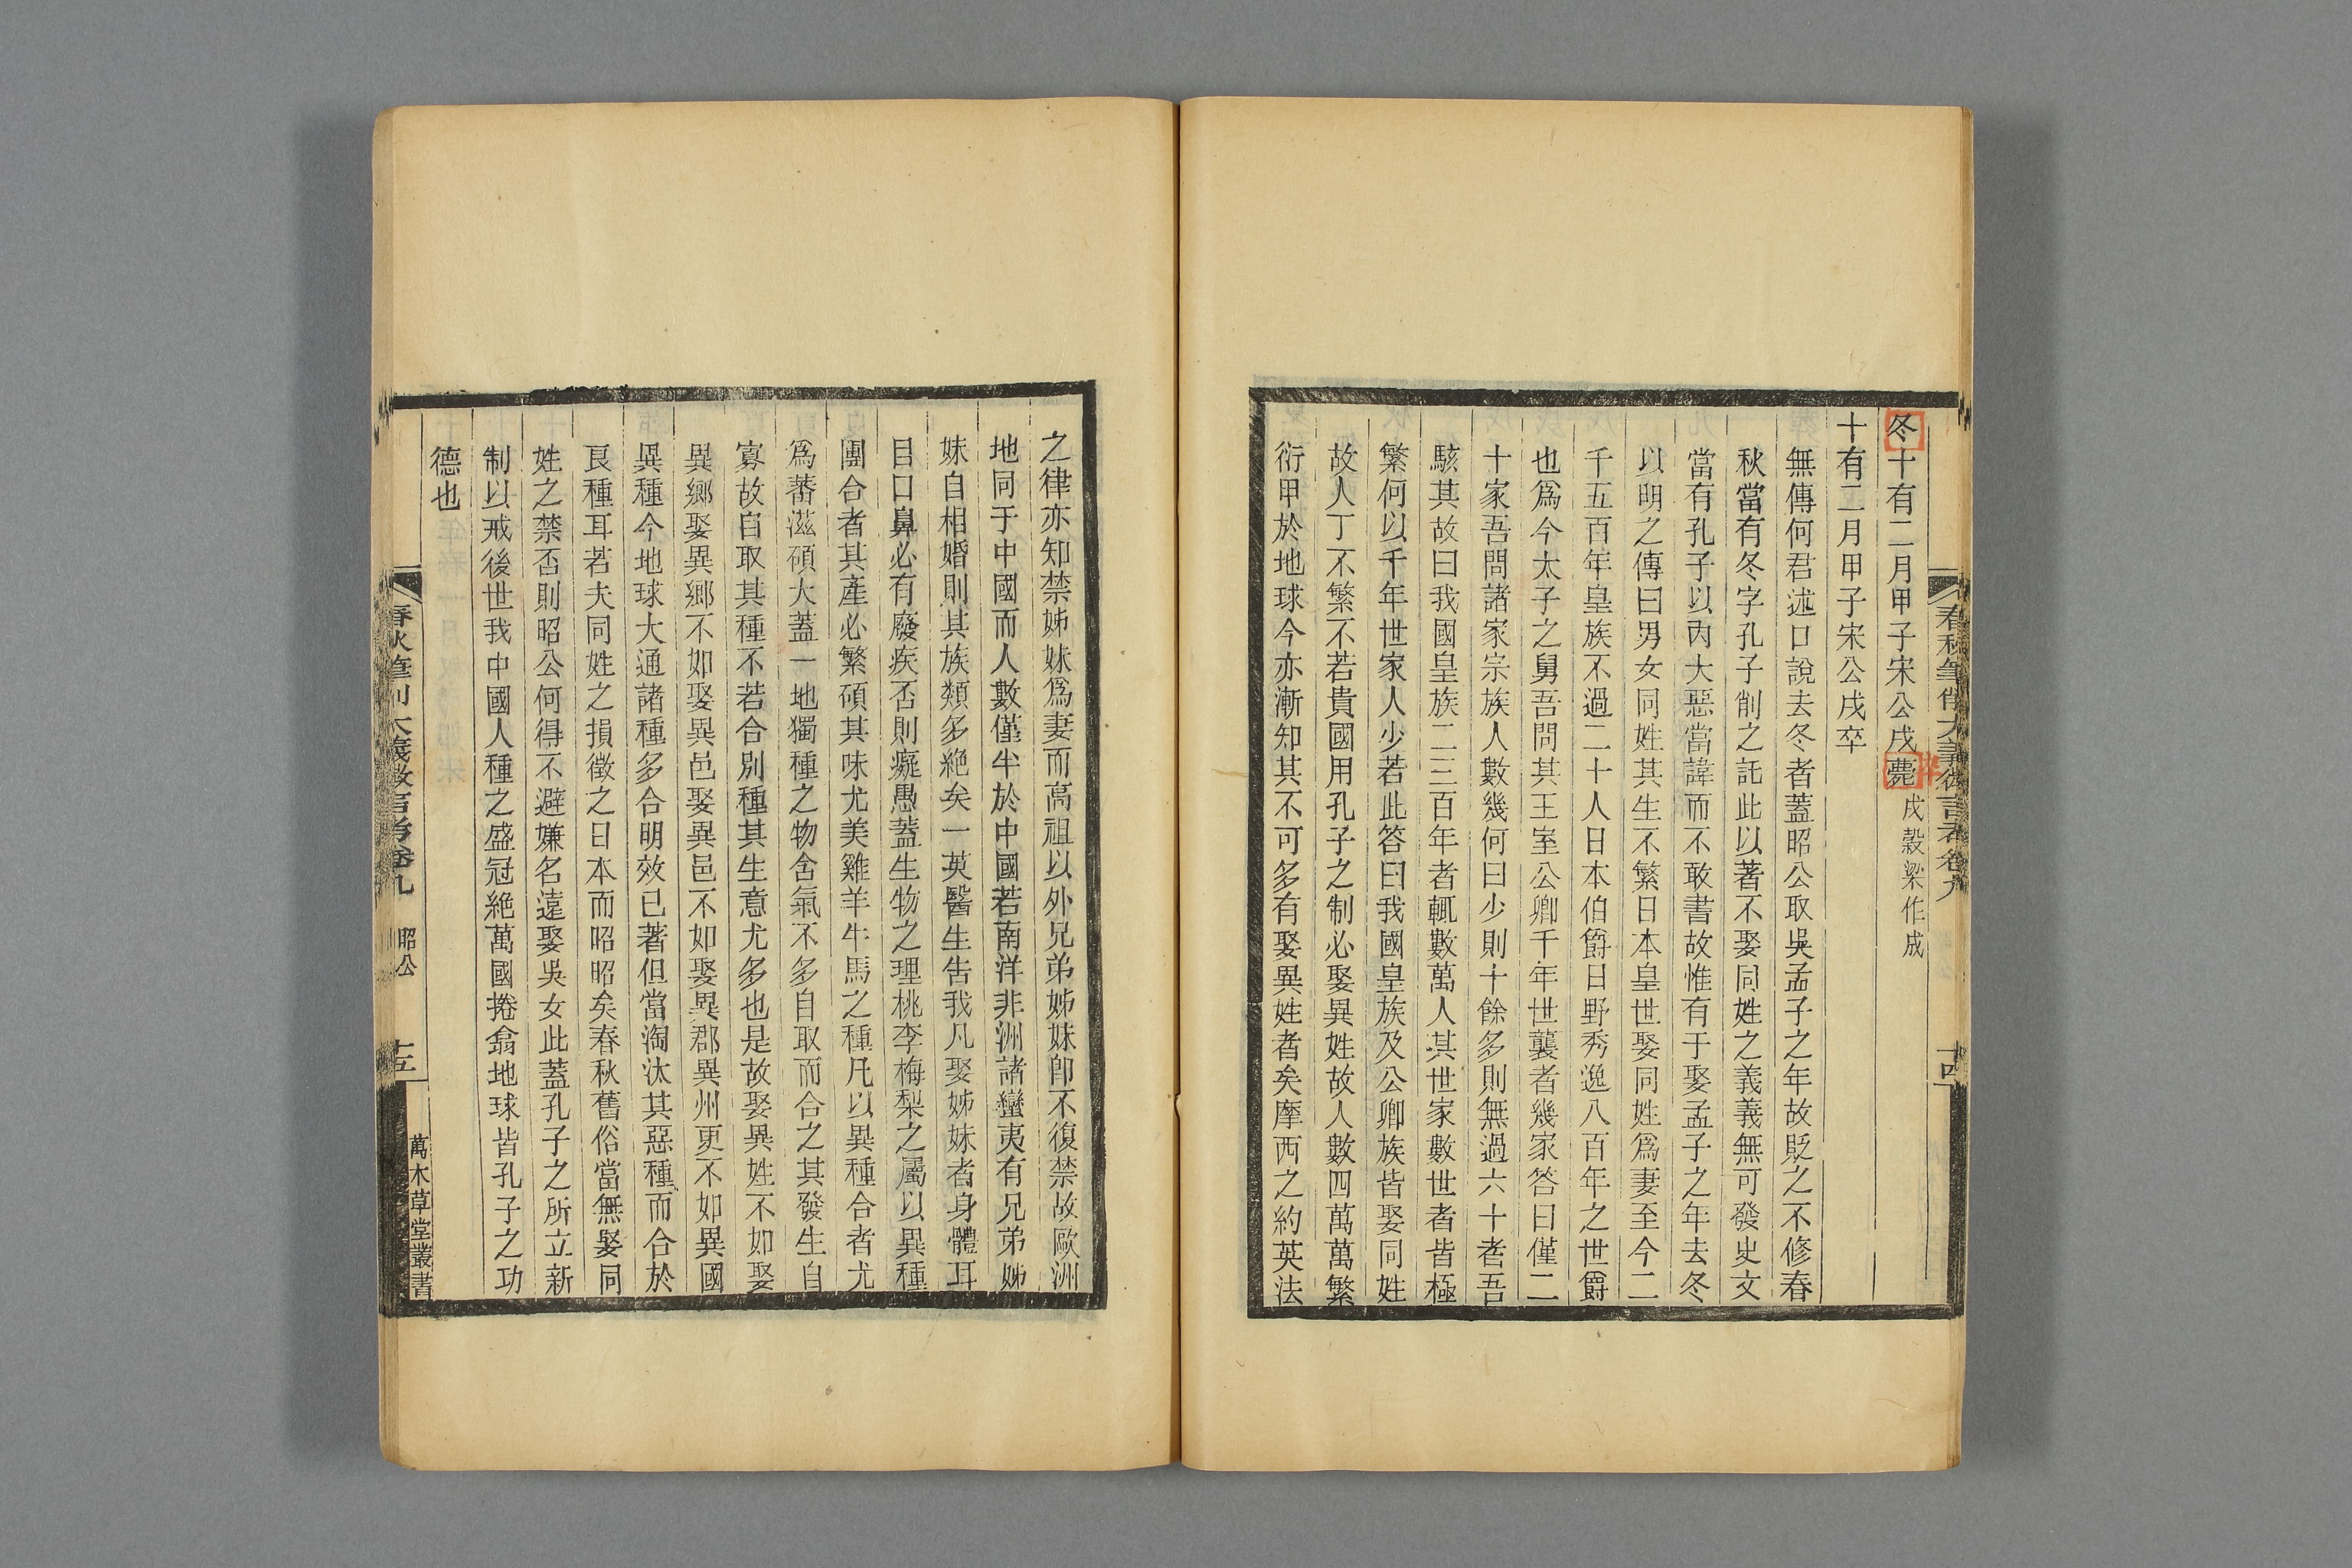 春秋筆削大義微言考卷九
十四
冬十有二月甲子宋公戌薨戌穀梁作成
卒
十有二月甲子宋公戌卒
無傳何君述口說去冬者蓋昭公取吳孟子之年故貶之不修春
秋當有冬字孔子削之託此以著不娶同姓之義義無可發史文
當有孔子以丙大惡當諱而不敢書故惟有于娶孟子之年去冬
以明之傳曰男女同姓其生不繁日本皇世娶同姓爲妻至今二
千五百年皇族不過二十人日本伯爵日野秀逸八百年之世爵
也爲今太子之舅吾問其王室公卿千年世襲者幾家答曰僅二
十家吾問諸家宗族人數幾何曰少則十餘多則無過六十者吾
駭其故曰我國皇族二三百年者輒數萬人其世家數世者皆極
繁何以千年世家人少若此答曰我國皇族及公卿族皆娶同姓
故人丁不繁不若貴國用孔子之制必娶異姓故人數四萬萬繁
衍甲於地球今亦漸知其不可多有娶異姓者矣摩西之約英法
之律亦知禁姊妹爲妻而高祖以外兄弟姊妹卽不復禁故歐洲
地同于中國而人數僅半於中國若南洋非洲諸蠻夷有兄弟姊
妹自相婚則其族類多絶矣一英醫生告我凡娶姊妹者身體耳
目口鼻必有廢疾否則癡愚蓋生物之理桃李梅梨之屬以異種
團合者其產必繁碩其味尤美雞羊牛馬之種凡以異種合者尤
爲蕃滋碩大蓋一地獨種之物舍氣不多自取而合之其發生自
寡故自取其種不若合別種其生意尤多也是故娶異姓不如娶
異鄉娶異鄉不如娶異邑娶異邑不如娶異郡異州更不如異國
異種今地球大通諸種多合明效已著但當淘汰其惡種而合於
良種耳若夫同姓之損徵之日本而昭昭矣春秋舊俗當無娶同
姓之禁否則昭公何得不避嫌名遠娶吳女此蓋孔子之所立新
制以戒後世我中國人種之盛冠絶萬國捲翕地球皆孔子之功
德也
春秋筆削大義微言考卷九 昭公 十五
萬木草堂叢書